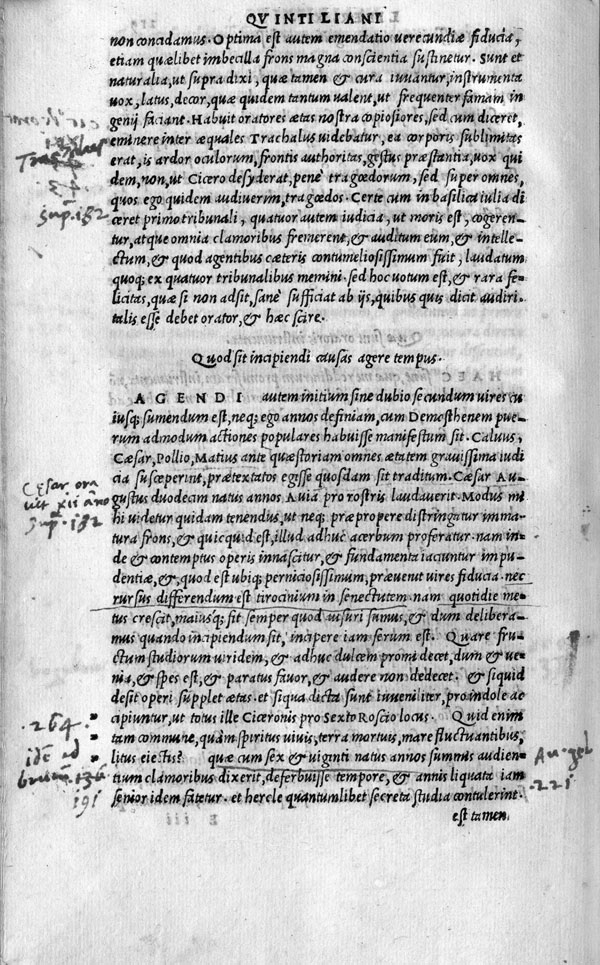 QVINTILIANI
non concidamus. Optima est autem emendatio verecundiæ fiducia,
etiam quælibet imbecilla frons magna conscientia sustinetur. Sunt et
naturalia, ut supra dixi, quæ tamen & cura iuvantur, instrumenta
vox, latus, decor, quæ quidem tantum valent, ut frequenter famam in
genij faciant. Habuit oratores ætas nostra copiosiores, sed cum diceret,
eminere inter æquales Trachalus videbatur, ea corporis sublimitas
erat, is ardor oculorum, frontis authoritas, gestus præstantia, vox qui
dem, non, ut Cicero desyderat, pene tragœdorum, sed super omnes,
quos ego quidem audiverim, tragœdos. Certe cum in basilica iulia di
ceret primo tribunali, quatuor autem iudicia, ut moris est, cogeren-
tur, atque omnia clamoribus fremerent, & auditum eum, & intelle-
ctum, & quod agentibus cæteris contumeliosissimum fuit, laudatum
quoq; ex quatuor tribunalibus memini. sed hoc votum est, & rara fe-
licitas, quæ si non adsit, sane sufficiat ab ijs, quibus quis dicit audiri.
talis esse debet orator, & hæc scire.
Quod sit incipiendi causas agere tempus.
AGENDI autem initium sine dubio secundum vires cu
iusq; sumendum est, neq; ego annos definiam, cum Demosthenem pue-
rum admodum actiones populares habuisse manifestum sit. Calvus,
Cæsar, Pollio, Matius ante quæstoriam omnes ætatem gravissima iudi
cia susceperint, prætextatos egisse quosdam sit traditum. Cæsar Au-
gustus duodecim natus annos Aviā pro rostris laudaverit. Modus mi
hi videtur quidam tenendus, ut neq; præpropere distringatur imma-
tura frons, & quicquid est, illud adhuc acerbum proferatur. nam in-
de & contemptus operis innascitur, & fundamenta iaciuntur impu-
dentiæ, &, quod est ubiq; perniciosissimum, prævenit vires fiducia. nec
rursus differendum est tirocinium in senectutem. nam quotidie me-
tus crescit, maiusq; fit semper quod ausuri sumus, & dum delibera-
mus quando incipiendum sit, incipere iam serum est. Quare fru-
ctum studiorum viridem, & adhuc dulcem promi decet, dum & ve-
nia, & spes est, & paratus favor, & audere non dedecet. & siquid
desit operi supplet ætas. et siqua dicta sunt iuveniliter, pro indole ac
cipiuntur, ut totus ille Ciceronis pro Sexto Roscio locus. Quid enim
tam commune, quàm spiritus vivis, terra mortuis, mare fluctuantibus,
litus eiectis? quæ cum sex & viginti natus annos summis audien-
tium clamoribus dixerit, deferbuisse tempore, & annis liquata iam
senior idem fatetur. et hercle quantumlibet secreta studia contulerint.
est tamen
sup. 182
Cęsar ora
vit xii āno
sup. 182
.264.
191
.221